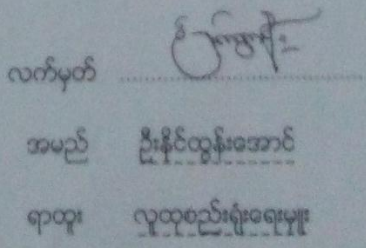 လက်မှတ်
အမည် ဦးနိုင်ထွန်းအောင်
ရာထူး လူထုစည်းရုံးရေးမှူး